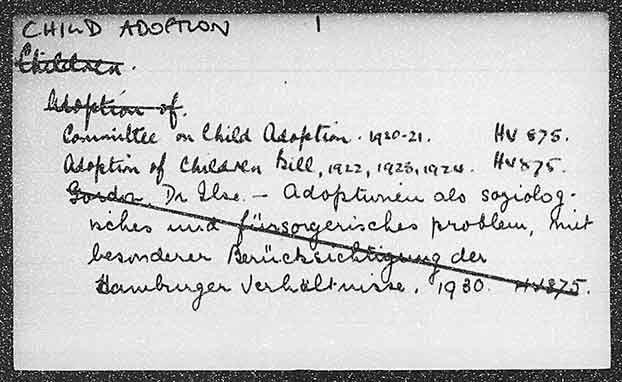 CHILD ADOPTION 1
Children.
Adoption of.
Committee on Child Adoption. 1920-21. HV 875.
Adoption of Children Bill, 1922, 1923, 1924. HV875.
Gordon, Dr Ilse. — Adoptionen als soziolog-
isches und fürsorgerisches problem, mit
besonderer Berücksichtigung der
Hamburger Verhältnisse. 1930. HV875.